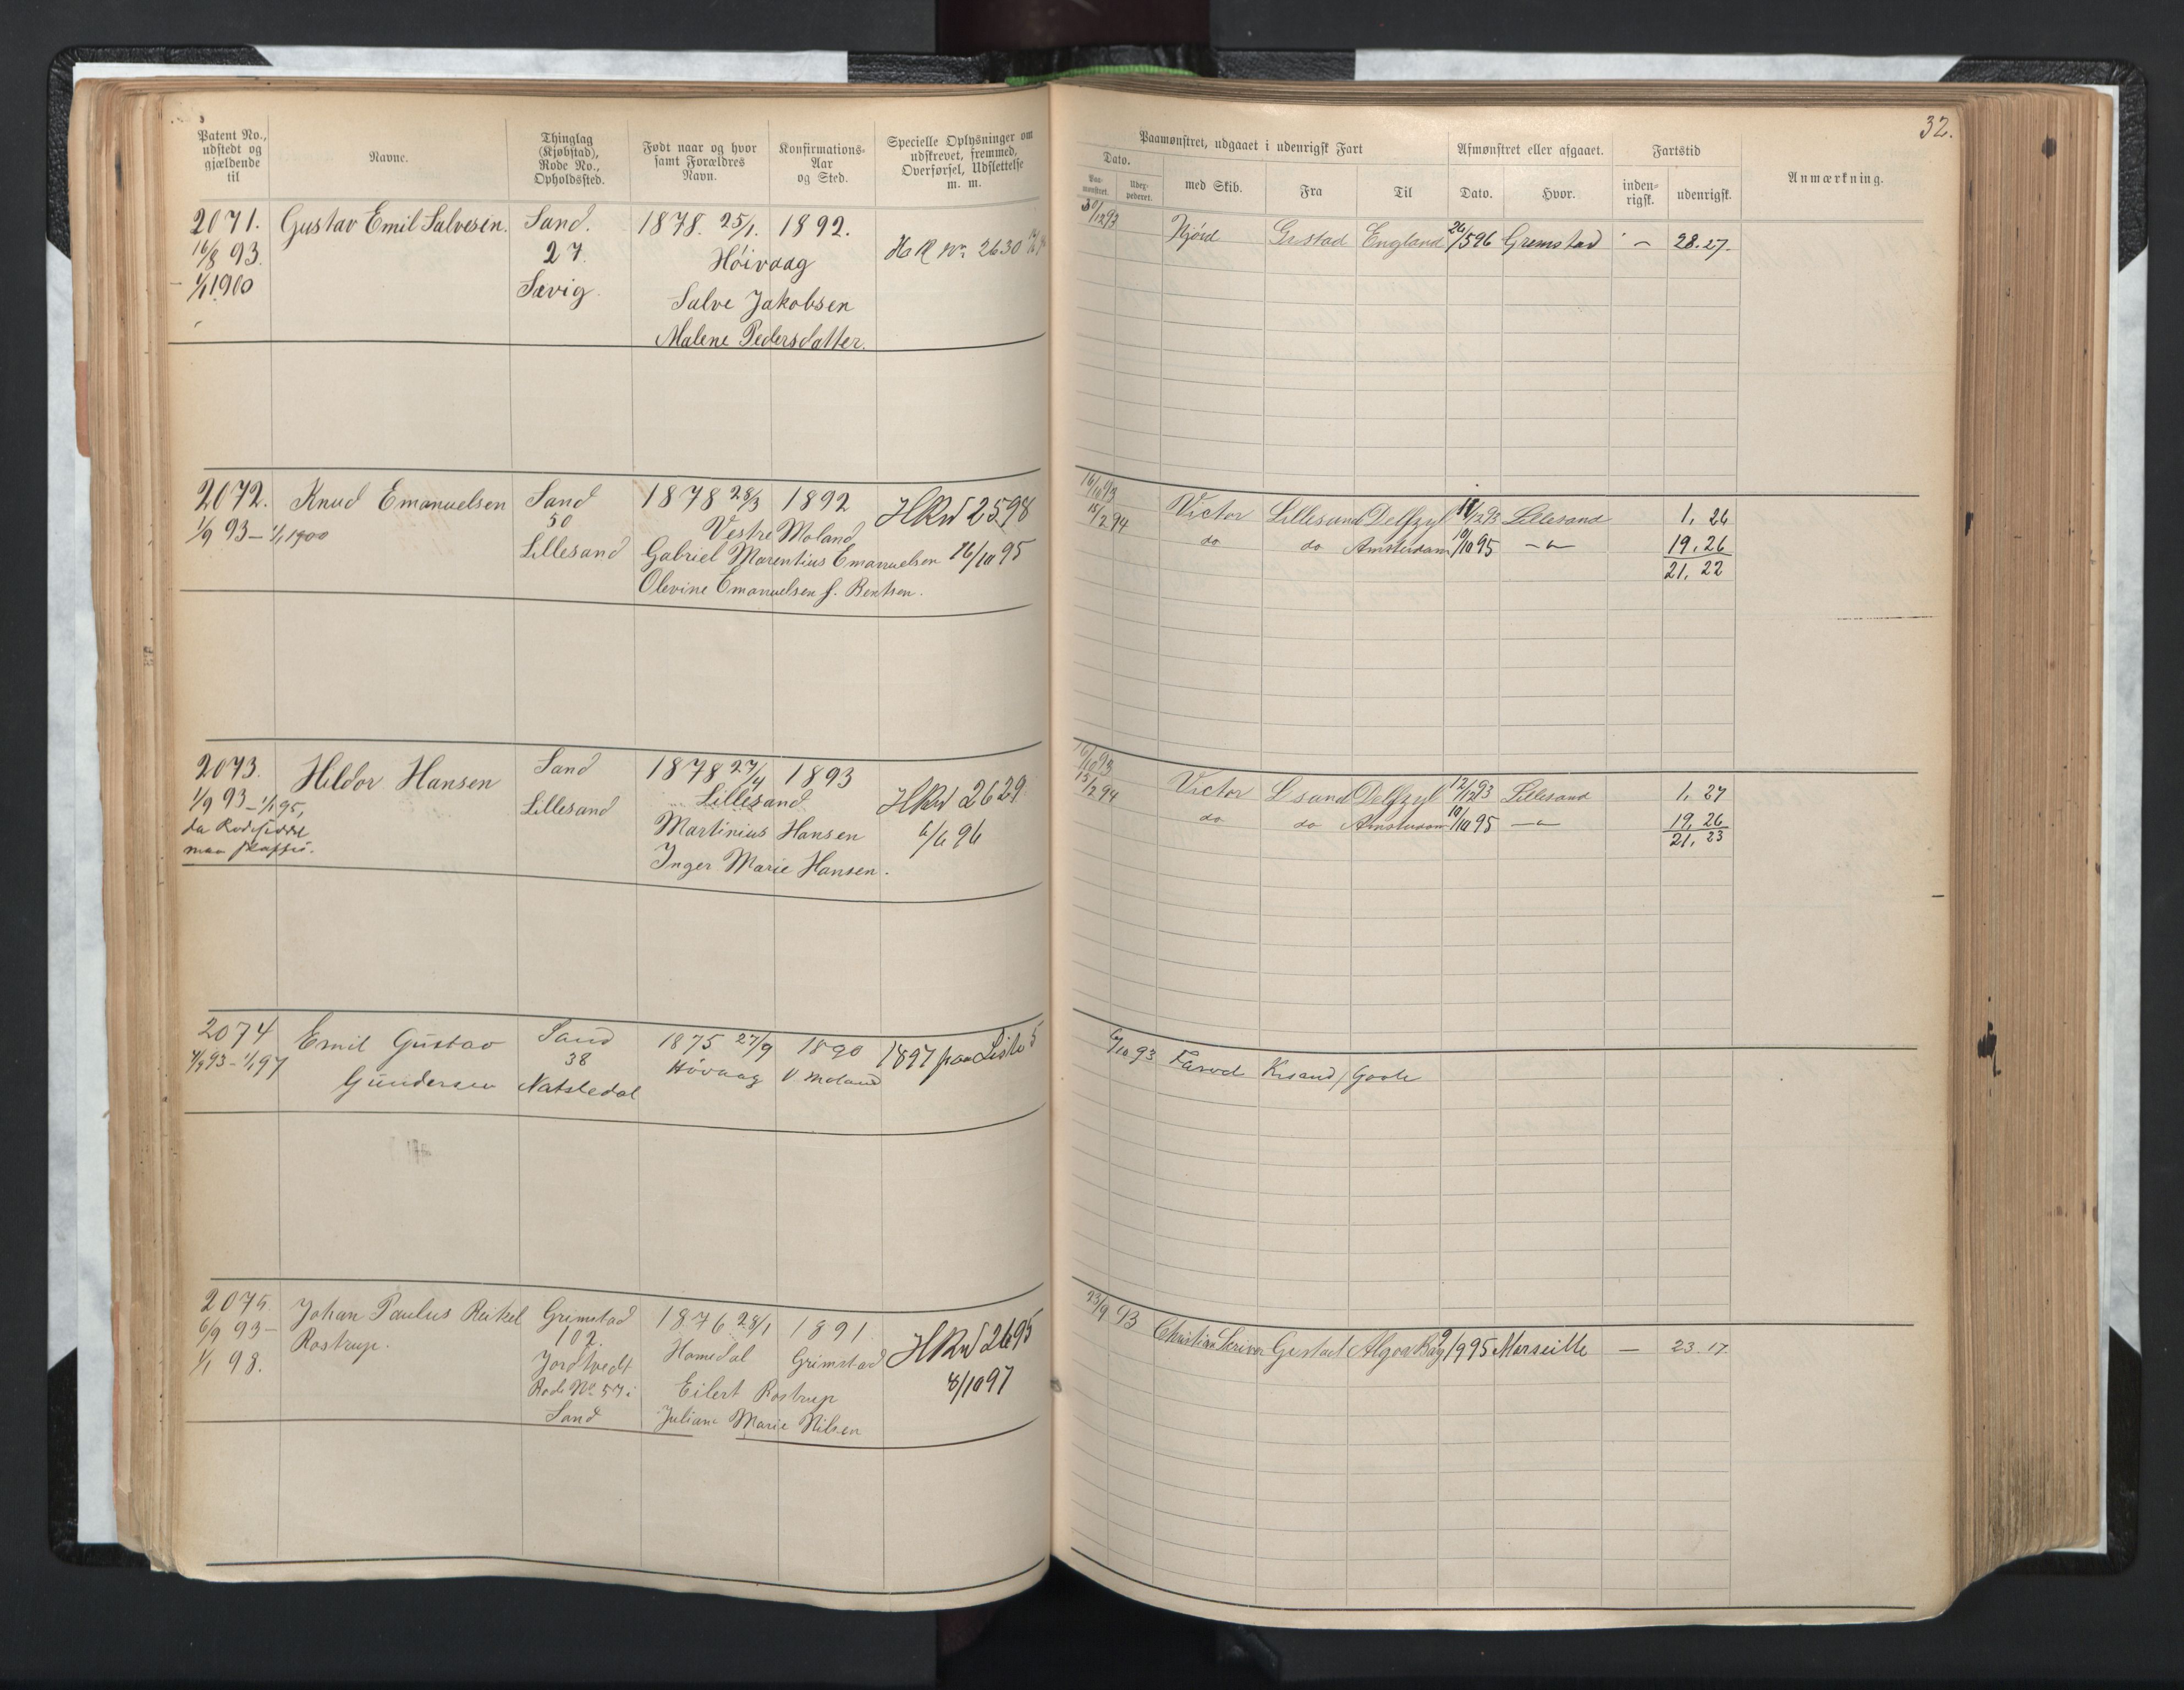 32.
Patent No., udstedt og gjældende til
Navne.
Thinglag (Kjøbstad), Rode No., Opholdssted.
Født naar og hvor samt Forældres Navn.
Konfirmations-Aar og Sted.
Specielle Oplysninger om udskrevet, fremmed, Overførsel, Udslettelse m. m.
Paamønstret, udgaaet i udenrigsk Fart
Afmønstret eller afgaaet.
Fartstid
Anmærkning.
Dato.
med Skib.
Fra
Til
Dato.
Hvor.
inden-rigsk.
udenrigsk.
2071. Gustav Emil Salvesen. Sand. 1878. 25/1. 1892.
16/8 93. 27. Høivaag H R No 2630
1/1 1900 Sævig. Salve Jakobsen
Malene Pedersdatter.
30/12 93 Njörd Gr.stad England 26/5 96 Gremstad — 28.27.
2072. Knud Emanuelsen Sand 1878 28/3 1892 HRN 2598
1/9 93 — 1/1 1900 50 Vestre Moland
Lillesand Gabriel Marentius Emanuelsen 16/10 95
Olevine Emanuelsen f. Bentsen.
16/10 93 Victor Lillesand Delfzyl 12/12 93 Lillesand 1, 26
15/2 94 do do Amsterdam 10/10 95 — " — 19, 26
21, 22
2073. Hildor Hansen Sand 1878 27/4 1893 HRN 2629
1/9 93 — 1/1 95, Lillesand Lillesand
da Rodeseddel Martinius Hansen 6/6 96
maa skaffes. Inger Marie Hansen.
16/10 93 Victor L sand Delfzyl 12/12 93 Lillesand 1, 27
15/2 94 do do Amsterdam 10/10 95 — " — 19, 26
21, 23
2074 Emil Gustav Sand 1875 27/9 1890 1897 paa Liste 5
4/9 93 - 1/1 97 Gundersen 38 Høvaag V Moland
Natstedal
6/10 93 Farvel Krsand / Goole
2075. Johan Paulus Reikel Grimstad 1876 28/1 1891 HRN 2695
6/9 93 — Rostrup. 102. Homedal Grimstad
1/1 98. Jordtvedt Eilert Rostrup 8/10 97
Rode No 57 i Juliane Marie Nilsen
Sand
23/9 93 Christian Scriver Gr.stad Algoa Bay 9/1 95 Marseille — 23. 17.